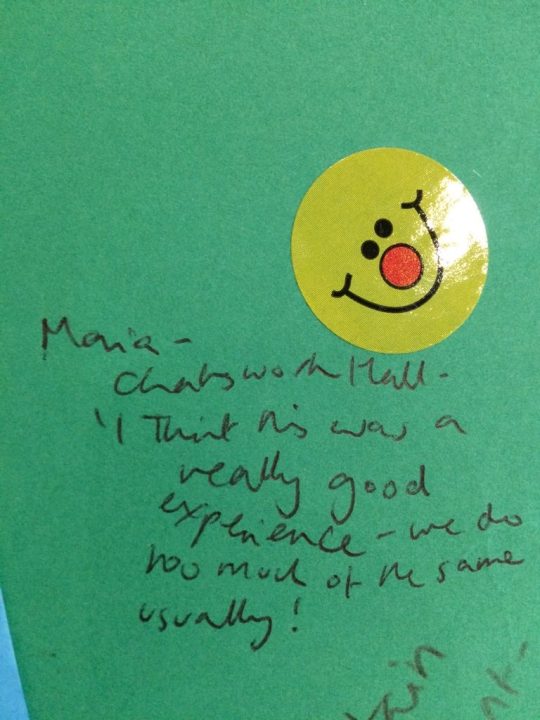 Maria -
Chatsworth Hall -
'I Think this was a
really good
experience - we do
too much of the same
usually!